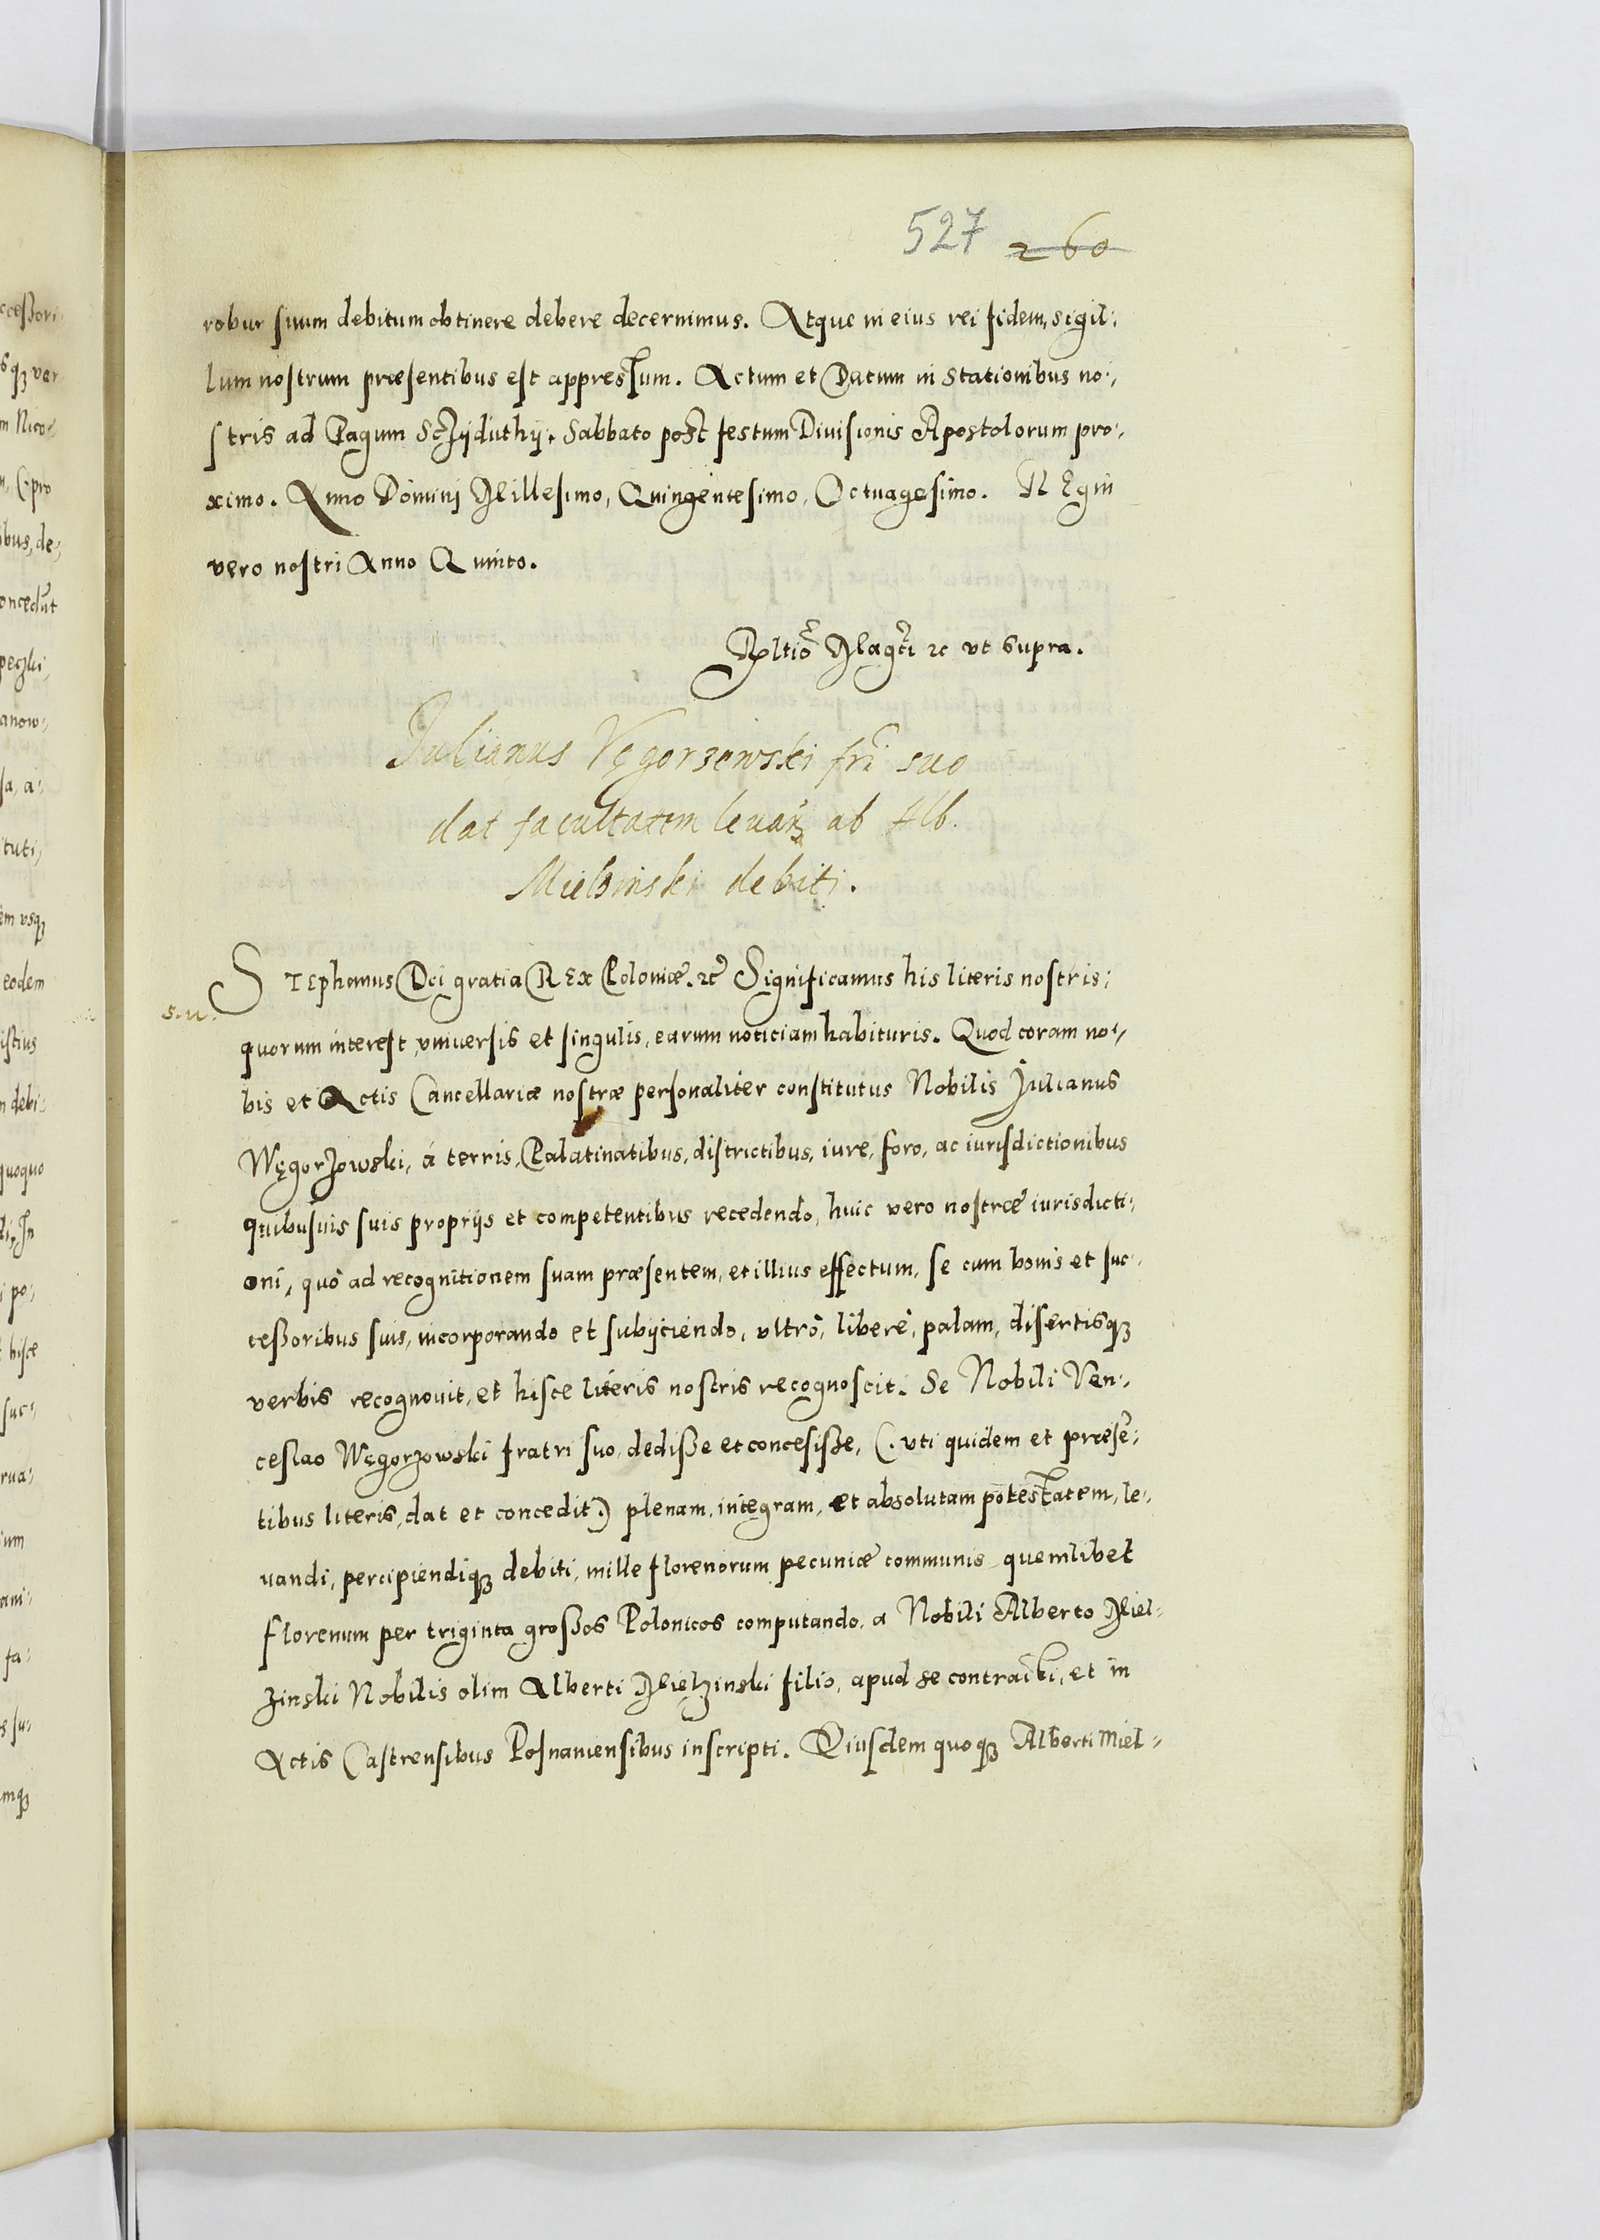 527 260
robur suum debitum obtinere debere decernimus. Atque in eius rei fidem, sigil:
lum nostrum præsentibus est appressum. Actum et Datum in stationibus no:
stris ad Pagum Sczÿduthÿ. Sabbato post festum Diuisionis Apostolorum pro:
ximo. Anno Domini Millesimo, Quingentesimo, Octuagesimo. REgni
vero nostri Anno Quinto.
Rltiō Magci ꝛc vt supra.
Julianus Vęgorzewski fri suo
dat facultatem leuan ab Alb.
Mielzinski debiti.
STEphanus Dei gratia REx Poloniæ. ꝛc Significamus his literis nostris:
s. u.
quorum interest, vniuersis et singulis, earum noticiam habituris. Quod coram no:
bis et Actis Cancellariæ nostræ personaliter constitutus Nobilis Julianus
Węgorzowski, á terris, Palatinatibus, districtibus, iure, foro, ac iurisdictionibus
quibusuis suis proprijs et competentibus recedendo, huic vero nostræ iurisdicti:
oni, quò ad recognitionem suam præsentem, et illius effectum, se cum bonis et suc:
ceßoribus suis, incorporando et subijciendo, vltrò, liberè, palam, disertisqꝫ
verbis recognouit, et hisce literis nostris recognoscit. Se Nobili Ven:
ceslao Węgorzowski fratri suo, dediße et concesiße, (. vti quidem et præsē:
tibus literis, dat et concedit.) plenam, integram, et absolutam potestatem, le:
uandi, percipiendiqꝫ debiti, mille florenorum pecuniæ communis quemlibet
florenum per triginta großos Polonicos computando, a Nobili Alberto Miel:
zinski Nobilis olim Alberti Mielzinski filio, apud se contracti, et in
Actis Castrensibus Posnaniensibus inscripti. Eiusdem quoqꝫ Alberti Miel: